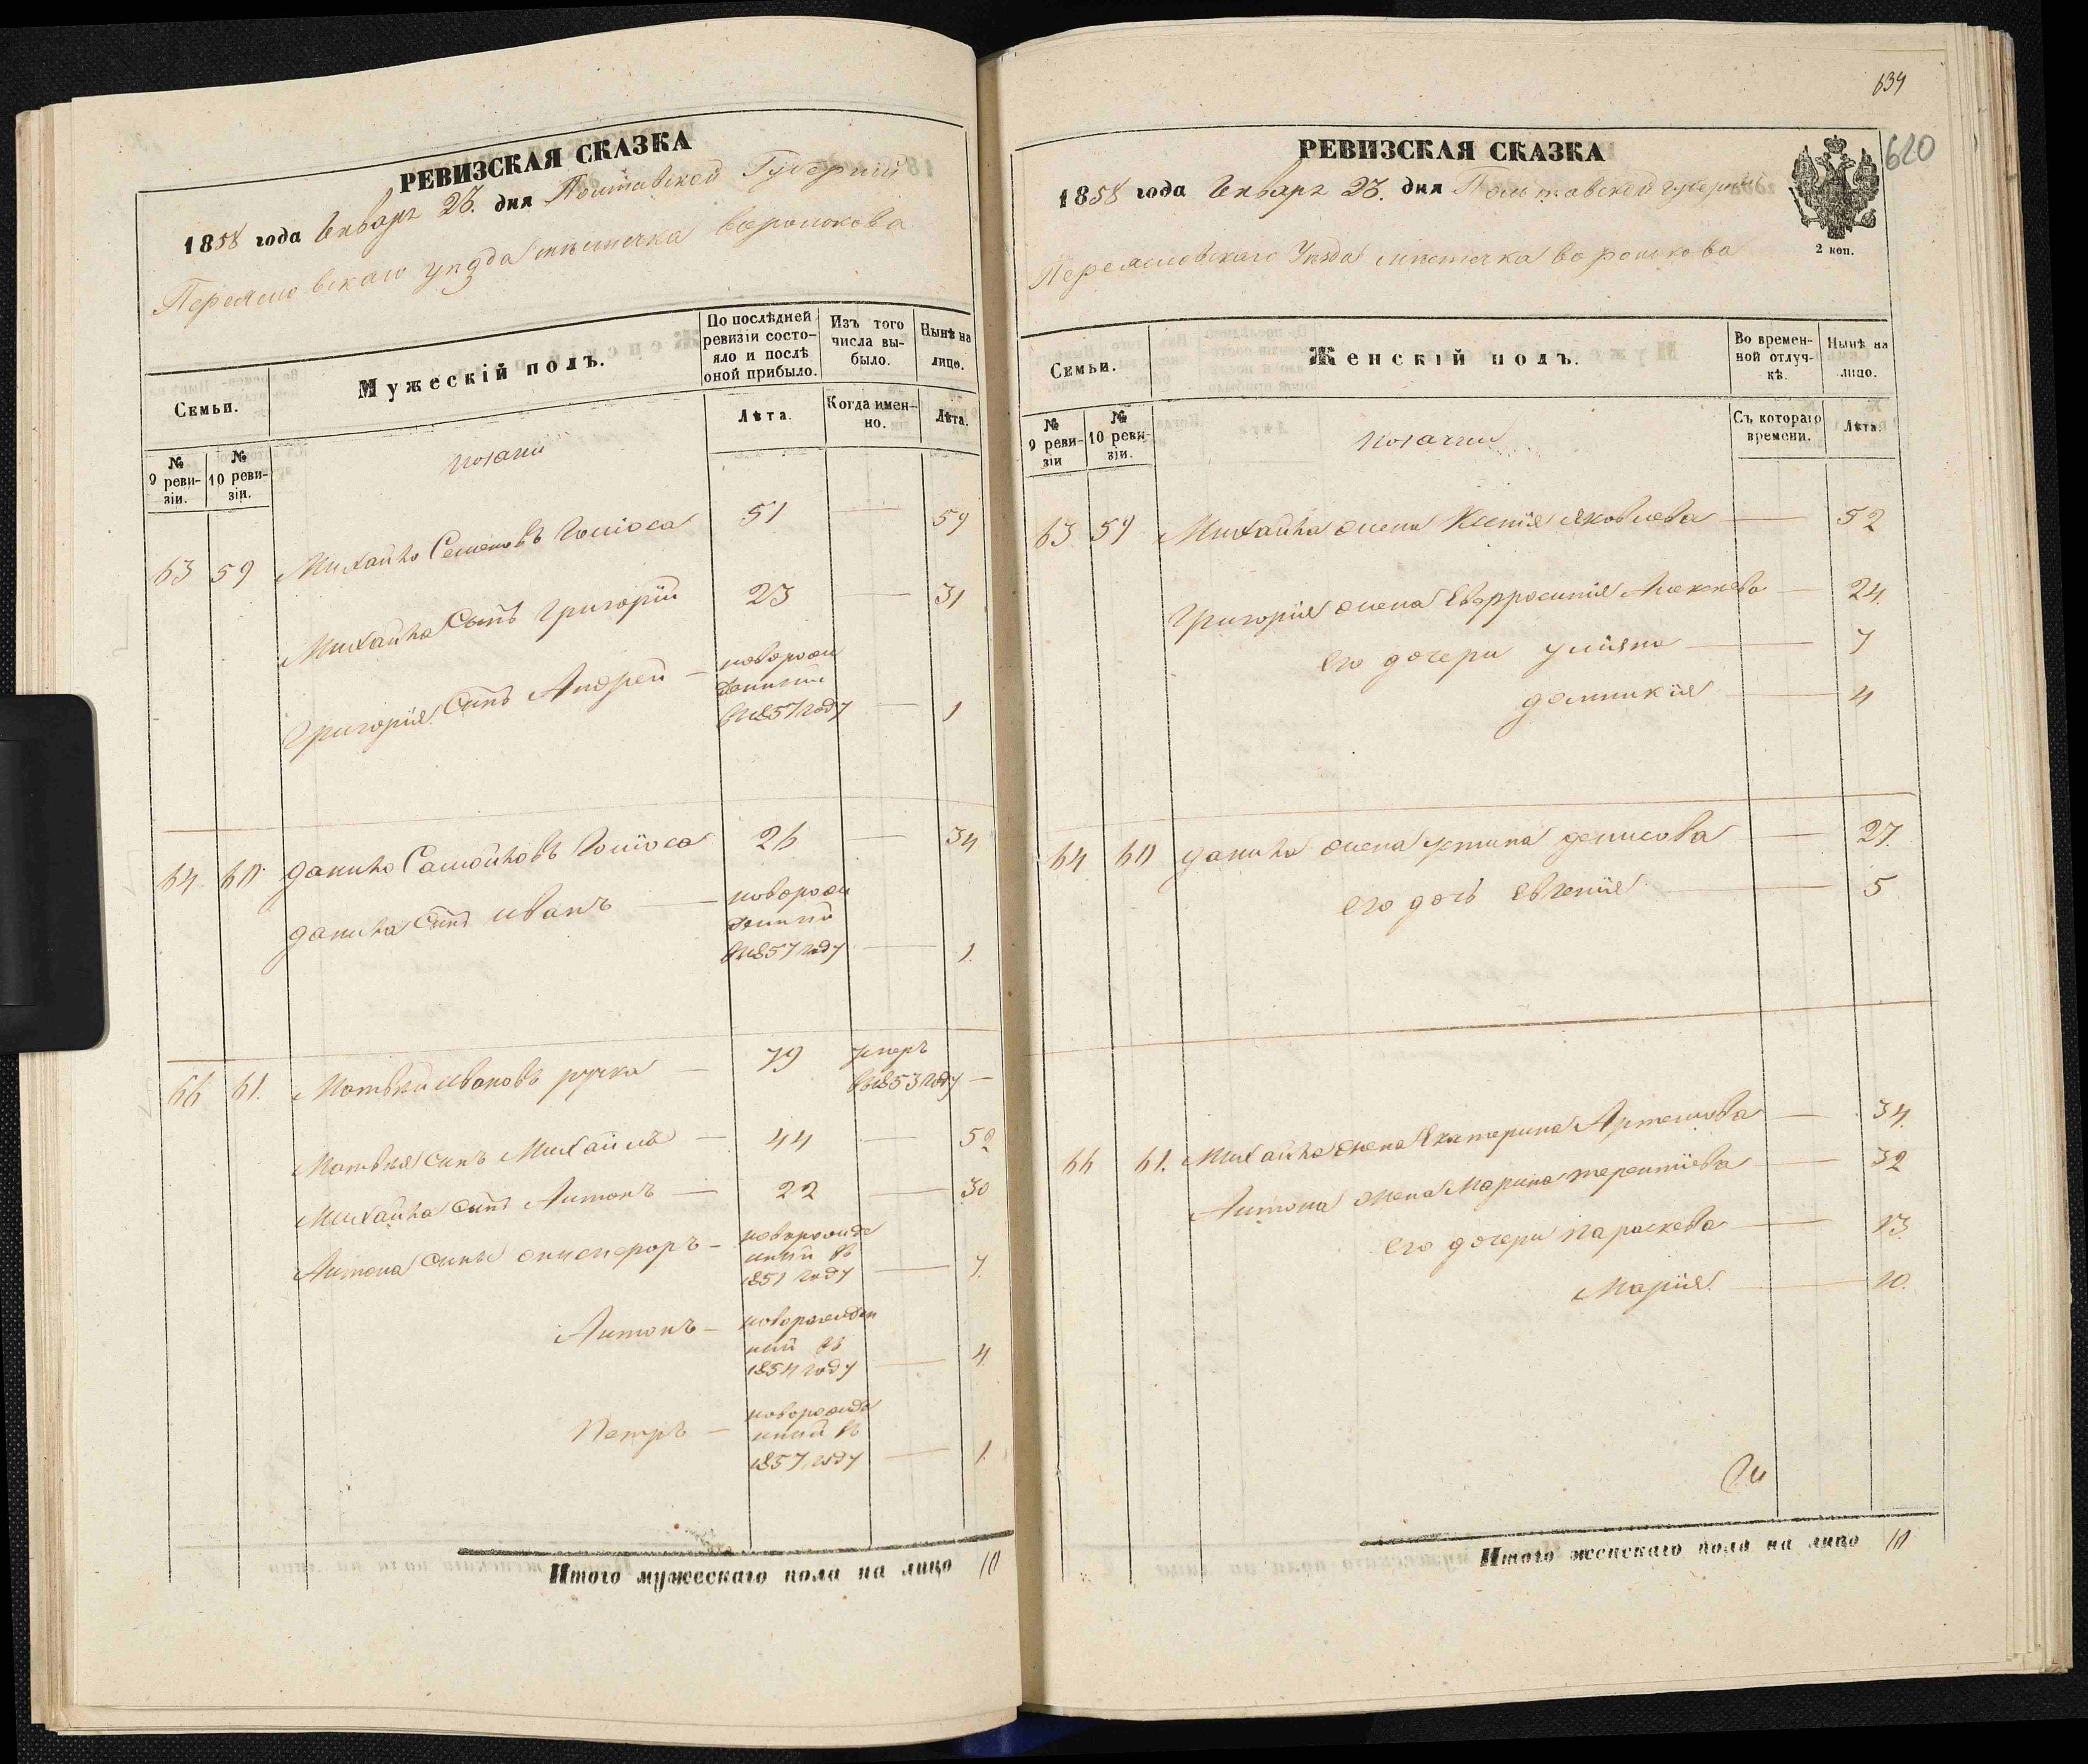 РЕВИЗСКАЯ СКАЗКА
1858 года Января 23. дня Полтавской Губерніи
Переясловскаго уезда местечка воронкова
Семьи.
Мужескій полъ.
По послѣдней ревизіи состояло и послѣ оной прибыло.
Изъ того числа выбыло.
Нынѣ на лицо.
№ 9 ревизіи.
№ 10 ревизіи.
Лѣта.
Когда именно.
Лѣта.
козаки
63 59 Михайло Семеновъ 51 — 59
Михайла Сынъ Григорій 23 — 31
Григорія Сынъ Андрей — новорож
денный
в 1857 году — 1
64. 60. данило Самойловъ 26 — 34
данила Сынъ иванъ — новорож
денный
в 1857 году — 1.
66 61. Матвей ивановъ ручка — 79 умеръ
в 1853 году —
Матвея сынъ Михаилъ — 44 — 52
Михайла сынъ Антонъ — 22 — 30
Антона сыны — новорожде
нный въ
1851 году — 7.
Антонъ — новорожден
ный въ
1854 году — 4.
Петръ — новорожде
нный въ
1857 году — 1.
Итого мужескаго пола на лицо 10
634
620
РЕВИЗСКАЯ СКАЗКА
2 коп.
1858 года Января 23. дня Полтавской губерніи
Переясловскаго Уезда местечка воронкова
Семьи.
Женскій полъ.
Во временной отлучкѣ.
Нынѣ на лицо.
№ 9 ревизіи
№ 10 ревизіи.
Съ котораго времени.
Лѣта.
козачки
63 59 Михайла жена Ксенія яковлева — 52
Григорія жена Алексеева — 24.
его дочери уліяна — 7
домникія — 4
64 60 данила жена устина денисова — 27.
его дочь евгенія — 5
66 61. Михайла жена Екатерина Артемова — 34.
Антона жена Марина терентіева — 32
его дочери параскева — 13.
Марія. — 10.
Итого женскаго пола на лицо 10